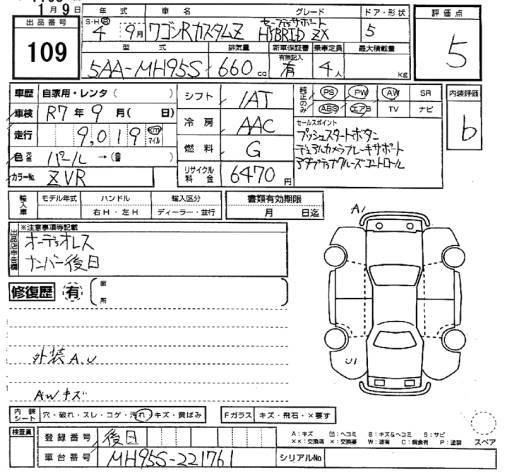 1月9日
出品番号
109
S・H
年 式
車 名
グレード
ドア・形状
4 9月
ワゴンRカスタムZ
セーフティサポート
HYBRID ZX
5
型 式
排気量
新車保証書
乗車定員
最大積載量
5AA-MH95S
660 cc
有無記入
有
4 人
kg
評価点
5
車歴
自家用・レンタ ( )
車検
R7 年 9 月 ( 日)
走行
9,019 km マイル
色
パール → (色)
カラーNo.
ZVR
シフト
IAT
冷房
AAC
燃料
G
リサイクル料金
6470円
純正のみ
PS PW AW SR
ABS エアB TV ナビ
セールスポイント
プッシュスタートボタン
デュアルカメラブレーキサポート
アダプティブクルーズコントロール
内装評価
b
輸入車
モデル年式
ハンドル
輸入区分
右H・左H
ディーラー・並行
書類有効期限
月 日迄
※注意事項等記載
出品店申告欄
オーディオレス
ナンバー後日
修復歴 有
箇所
外装A.U
AWキズ
A1
U1
内装シート
穴・破れ・スレ・コゲ・汚れ・キズ・黄ばみ
Fガラス
キズ・飛石・×要す
検査員
登録番号
後日
車台番号
MH95S-221761
シリアルNo.
A:キズ U:ヘコミ B:キズ&ヘコミ S:サビ
××:交換済 ×:交換要 W:波有 C:腐食有 P:塗装
スペア